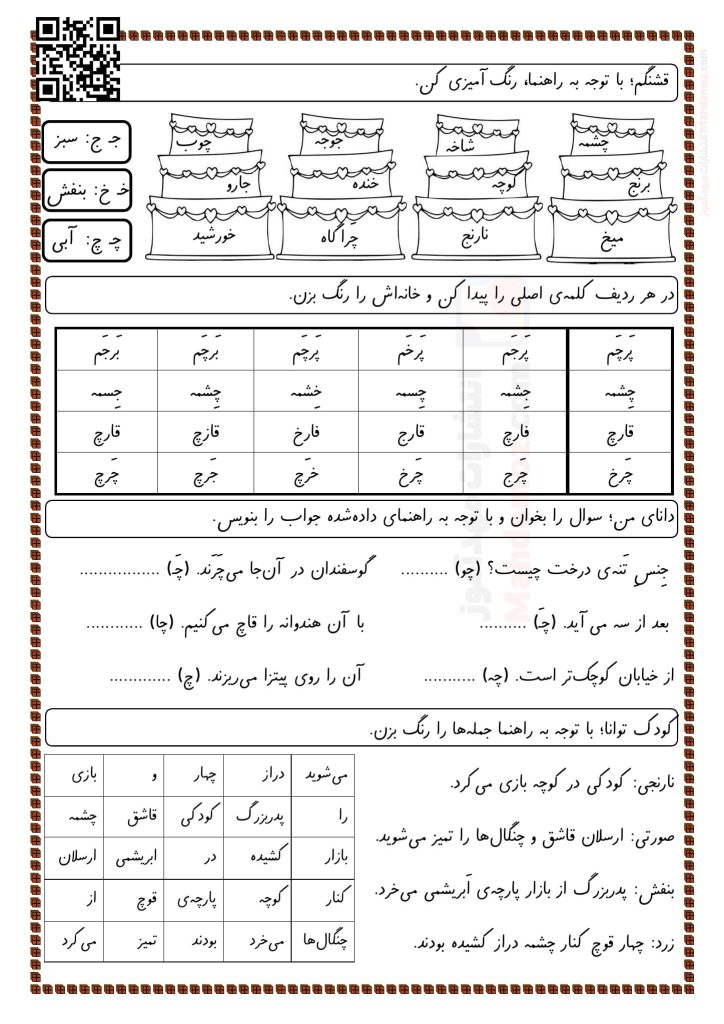 قشنگم؛ با توجه به راهنما، رنگ آمیزی کن.
چشمه شاخه جوجه چوب جـ ج: سبز
برنج لوچه خنده جارو خـ خ: بنفش
میخ نارنج چَراگاه خورشید چـ چ: آبی
در هر ردیف کلمه‌ی اصلی را پیدا کن و خانه‌اش را رنگ بزن.
پَرچَم پَرجَم پَرخَم پَرچَم بَرچَم بَرجَم
چِشمه جِشمه چِسمه خِشمه چِشمه جِسمه
قارچ فارچ قارج فارخ قازچ قارچ
چَرخ چَرج چَرخ خَرچ جَرچ چَرچ
دانای من؛ سوال را بخوان و با توجه به راهنمای داده‌شده جواب را بنویس.
جِنسِ تَنه‌ی درخت چیست؟ (چو) .......... گوسفندان در آن‌جا می‌چَرَند. (چَـ) .................
بعد از سه می آید. (چـَ) .......... با آن هندوانه را قاچ می‌کنیم. (چا) ............
از خیابان کوچک‌تر است. (چه) ........... آن را روی پیتزا می‌ریزند. (چ) .............
کودک توانا؛ با توجه به راهنما جمله‌ها را رنگ بزن.
نارنجی: کودکی در کوچه بازی می‌کرد.
صورتی: ارسلان قاشق و چنگال‌ها را تمیز می‌شوید.
بنفش: پدربزرگ از بازار پارچه‌ی اَبریشمی می‌خرد.
زرد: چهار قوچ کنار چشمه دراز کشیده بودند.
می‌شوید دراز چهار و بازی
را پدربزرگ کودکی قاشق چشمه
بازار کشیده در ابریشمی ارسلان
کنار کوچه پارچه‌ی قوچ از
چنگال‌ها می‌خرد بودند تمیز می‌کرد
انتشارات مهدآموز
Mahdamoz.com